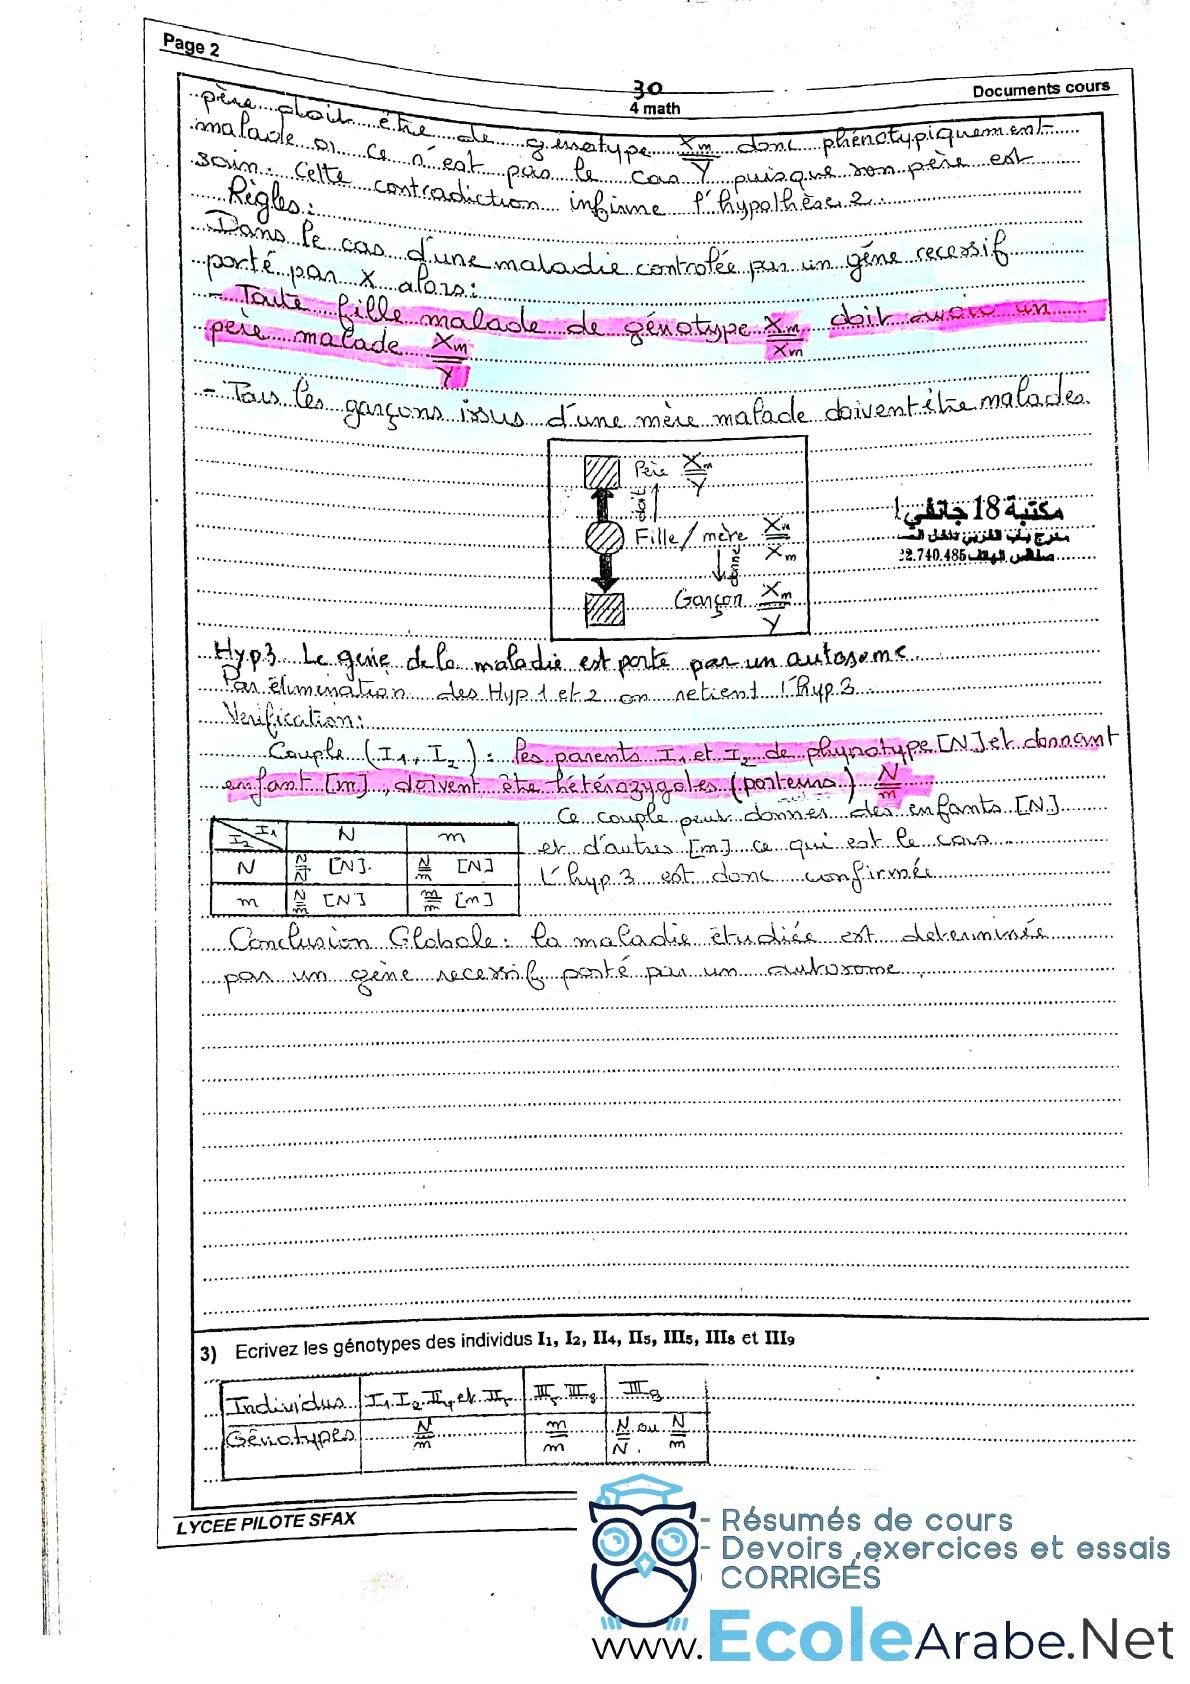 Page 2
30
4 math
Documents cours
père doit être de génotype Xm/Y donc phénotypiquement
malade or ce n'est pas le cas puisque son père est
sain. Cette contradiction infirme l'hypothèse 2.
Règles:
Dans le cas d'une maladie controlée par un gène recessif
porté par X alors:
- Toute fille malade de génotype Xm/Xm doit avoir un
père malade Xm/Y
- Tous les garçons issus d'une mère malade doivent être malades.
Père Xm/Y
doit
Fille/mère Xm/Xm
donne
Garçon Xm/Y
مكتبة 18 جانفي
22.740.485
Hyp3 Le gène de la maladie est porté par un autosome
Par élimination des Hyp 1 et 2 on retient l'hyp 3.
Verification:
Couple (I1, I2): les parents I1 et I2 de phynotype [N] et donnant
enfant [m], doivent être hétérozygotes (porteurs) N/m
Ce couple peut donner des enfants [N]
et d'autres [m] ce qui est le cas
l'hyp 3 est donc confirmée
I1 N m
I2
N N/N [N]. N/m [N]
m N/m [N] m/m [m]
Conclusion Globale: la maladie étudiée est determinée
par un gène recessif porté par un autosome.
3) Ecrivez les génotypes des individus I1, I2, II4, II5, III5, III8 et III9
Individus I1. I2. II4 et II5 III5 III8 III9
Génotypes N/m m/m N/N ou N/m
LYCEE PILOTE SFAX
- Résumés de cours
- Devoirs ,exercices et essais
CORRIGÉS
www.EcoleArabe.Net